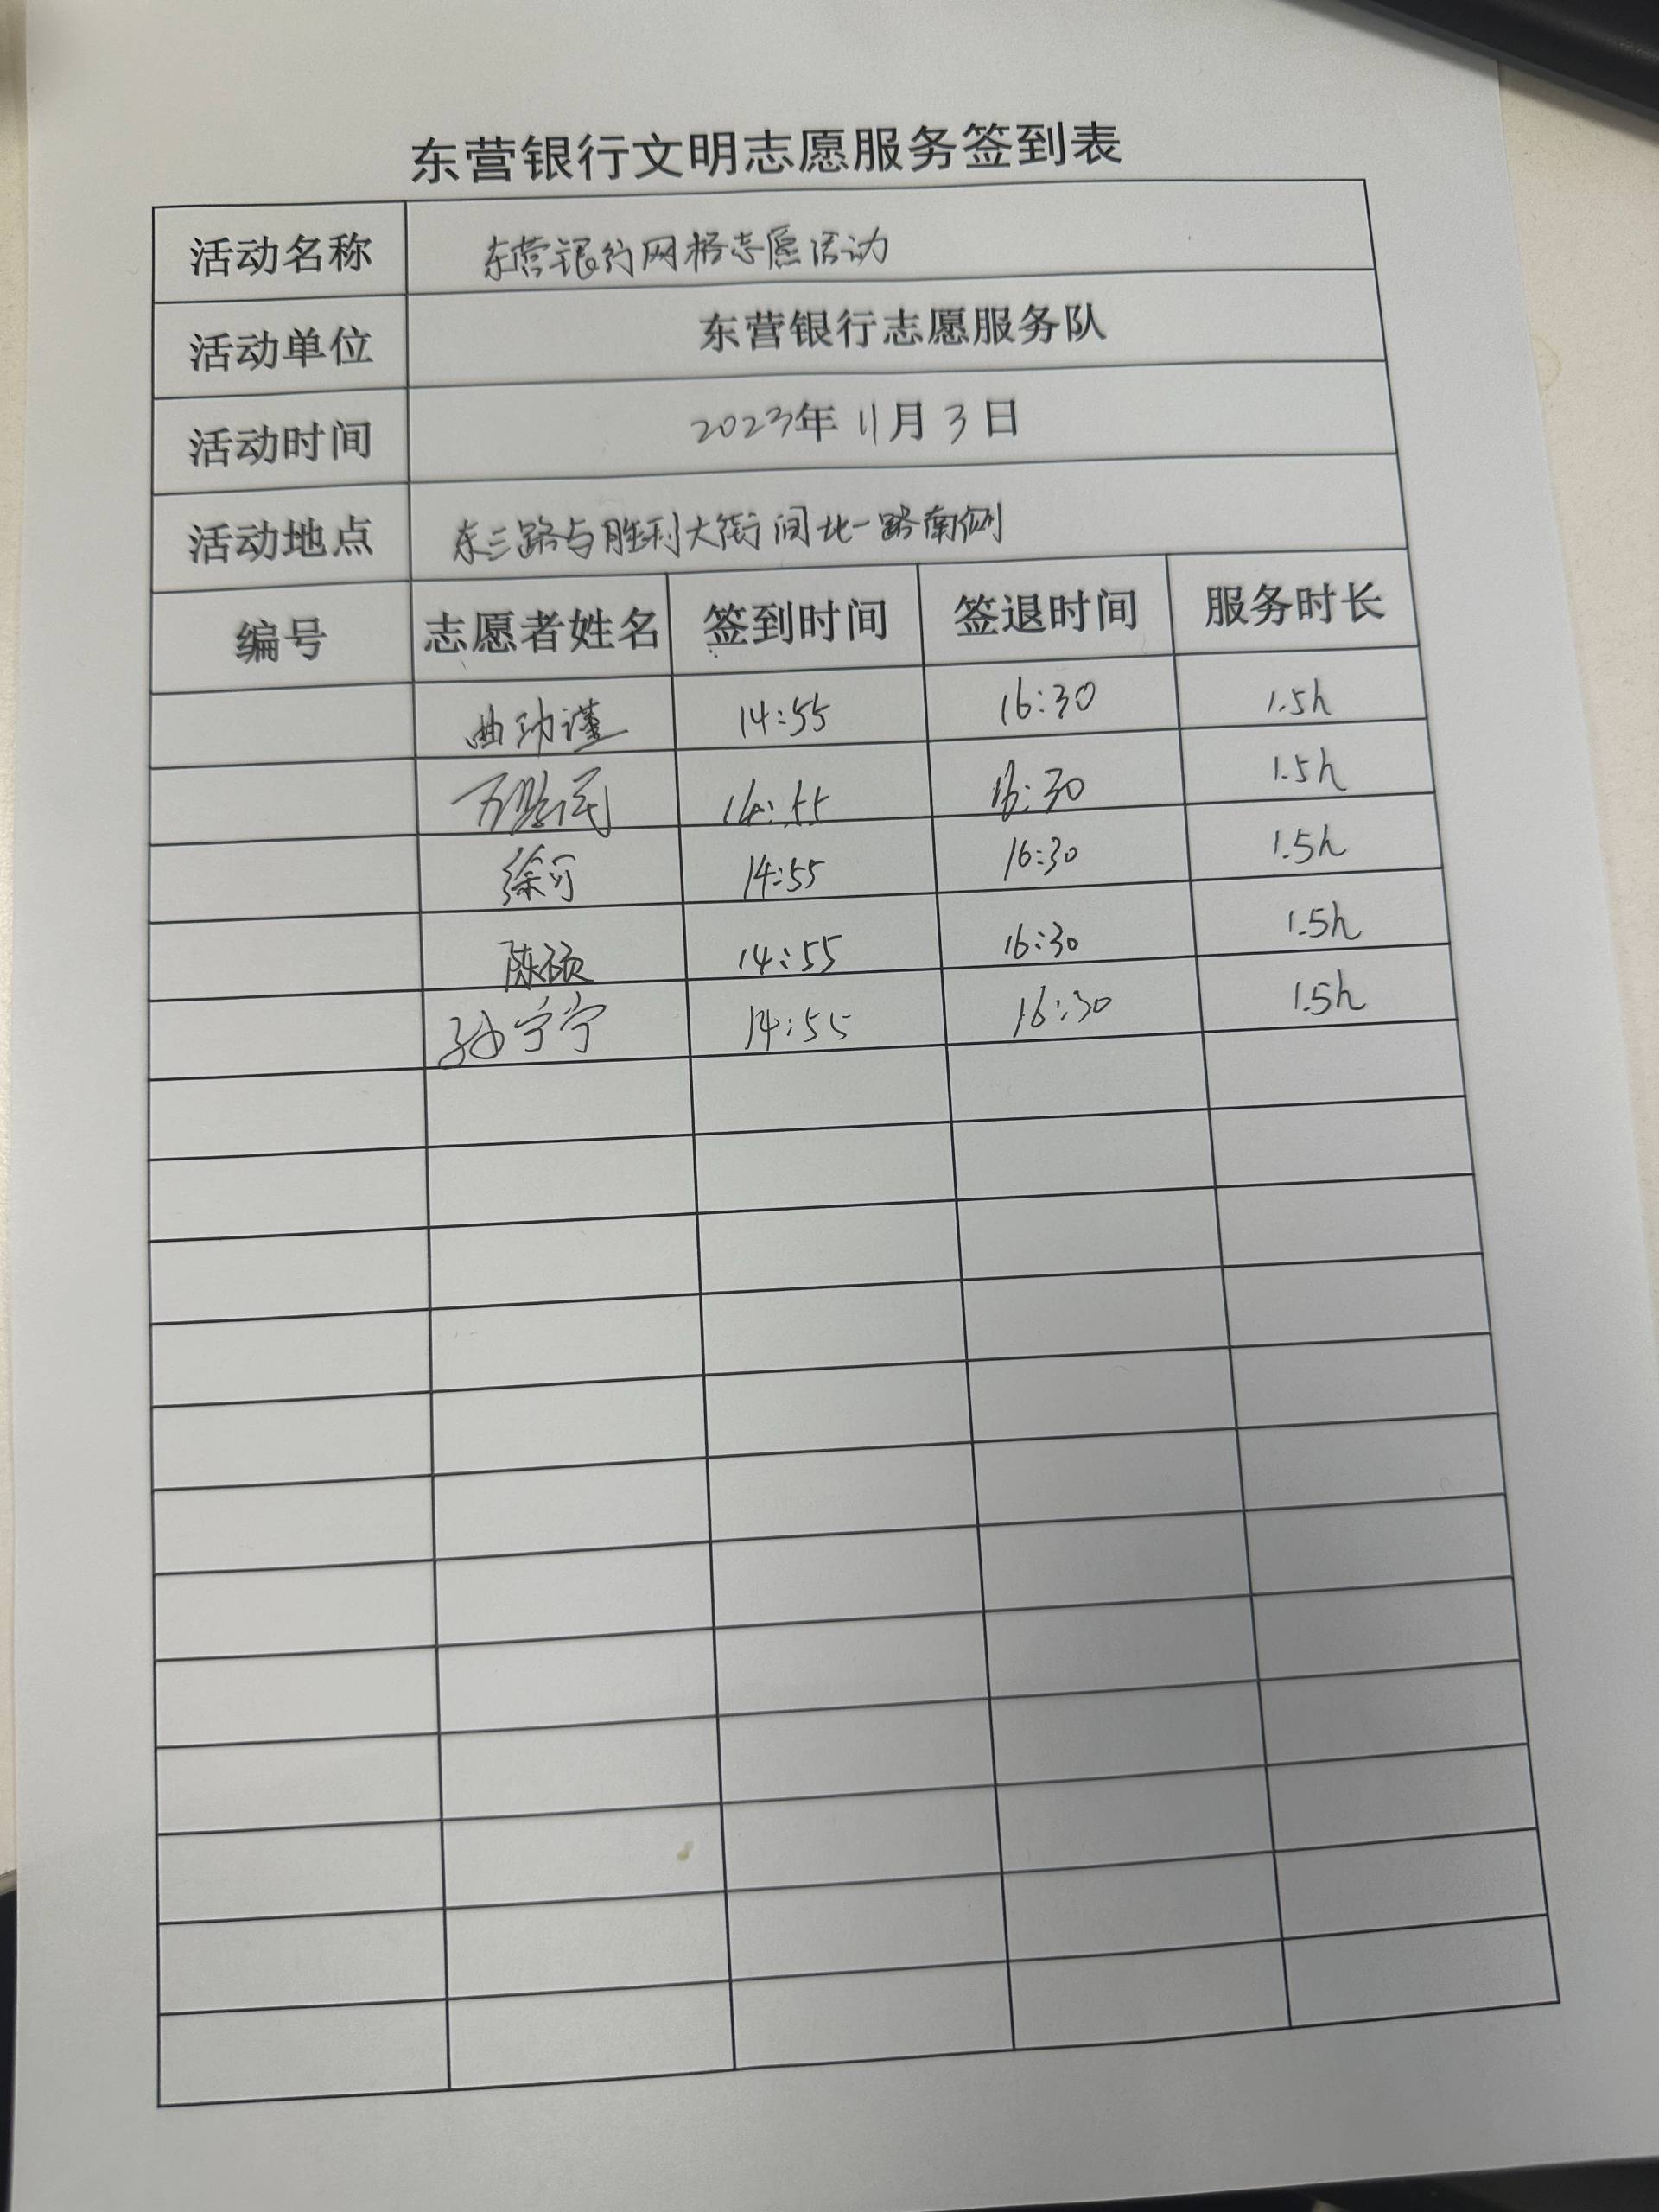 东营银行文明志愿服务签到表
活动名称 东营银行网格志愿活动
活动单位 东营银行志愿服务队
活动时间 2023年11月3日
活动地点 东三路与胜利大街间北一路南侧
编号 志愿者姓名 签到时间 签退时间 服务时长
14:55 16:30 1.5h
14:55 16:30 1.5h
徐可 14:55 16:30 1.5h
陈硕 14:55 16:30 1.5h
孙宁宁 14:55 16:30 1.5h